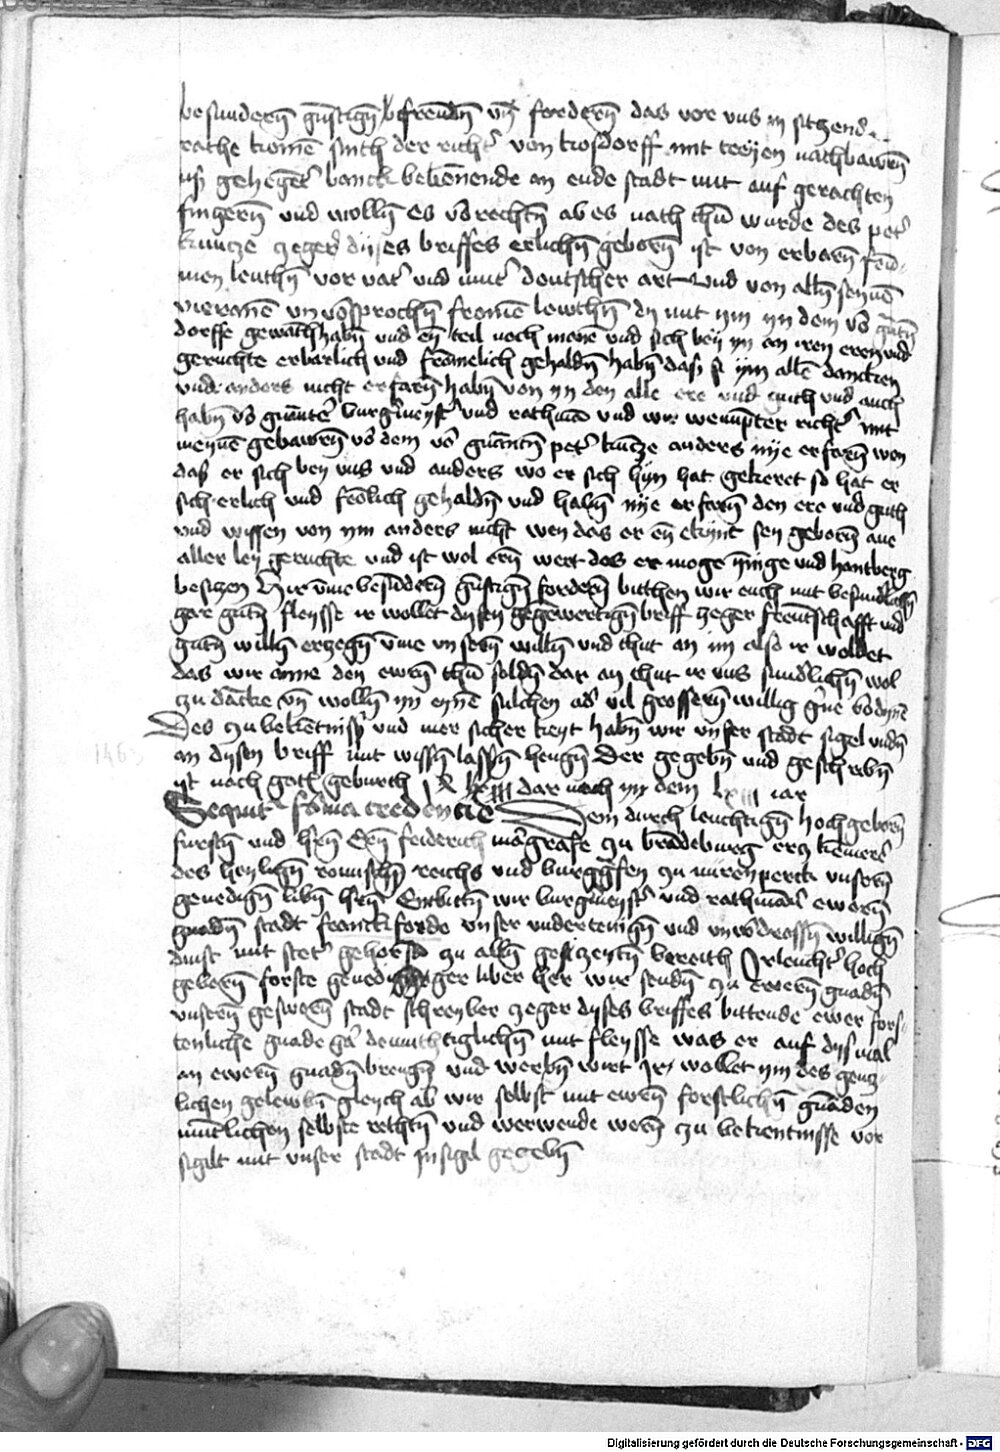 besundern gustign frewndn vn fordern das vor vns in sitzend
rathe komē sinth der richt von losdorff mit czweyen nachbawrn
geheget banck bekēnende an eyde stadt mit auf gerachten
fingern vnd wolln es rechtn ab es nach thū wurde des pet
kuncze czeger disses briffes erlichn geborn ist von erbarn
men leuthn vor vat vnd mut deutscher art vnd von alln seynē
vieranē vn vosprochn fromē lewthn dy mit ym yn dem
dorffe gewanth habn vnd eyn teil noch wonē vnd sich bey yn an iren eren vnd
geruchte erbarlich vnd fromelich gehaldn habn das si ym allē dancken
vnd anders nicht erfarn habn von yn den alle ere vnd guth vnd auch
habn burgmeyst vnd rathmāē vnd wir richt mit
meynē gebawern dem pet kuncze anders nye erfarn wen
das er sich bey vns vnd anders wo er sich hyn hat gekeret so hat er
sich erlich vnd frolich gehaldn vnd habn nye erfarn den ere vnd guth
vnd wissen von ym anders nicht wen das er eyn sey geborn ane
aller ley geruchte vnd ist wol ern wert das er moge ynnge vnd hantwerg
besiczen Hir vme besundern gustign fordern bitthen wir euch mit
gar gutn fleysse ir wollet dysen gegewertign briff czeger frewntschafft vnd
gutn willn erczegn vme vnsern willn vnd thut an im also ir woldet
das wir eyme den ewrn thū soldn dar an thut ir vns sundlichn wol
zu dācke vn wolln ym eynē sulchen ad vil grossern willig
Des zu bekētniss vnd mer sicher keyt habn wir vnser stadt sigel vndn
an dysen briff mit wissn lassn hengn Der gegebn vnd geschribn
ist noch gots geburth dar noch yn dem lxiii iar
Sequit forma credencie Dem durch leuchtign hoch geborn
furstn vnd hern Ern frederich margrafe zu brādeburg ercz kemerer
des heylign romischn reichs vnd burggrafen zu nurenperck vnsern
genedign libn hern Enbittn wir burgmeyst vnd rathmāē ewern
gnadn stadt franckforde vnser vndertenign vnd vnvodrossn willign
dinst mit stet gehorsā zu alln geczeytn bereith Irleucht hoch
geborn forste genedig ger liber her wir sendn zu ewern gnadn
vnsern geswern stadt schreyber czeger dyses briffes bittende ewer fors-
tenliche gnade gar demuthtiglichn mit fleysse was er auf dys mal
an ewern gnadn brengn vnd werbn wirt Ir wollet ym des gencz-
lichen gelewbn gleych ab wir selbst mit ewern forstlichn gnāden
muntlichen selbste rethn vnd werwende wern zu bekentnisse vor
sigilt mit vnser stadt Insigil gegebn
1463
Digitalisierung gefördert durch die Deutsche Forschungsgemeinschaft - DFG